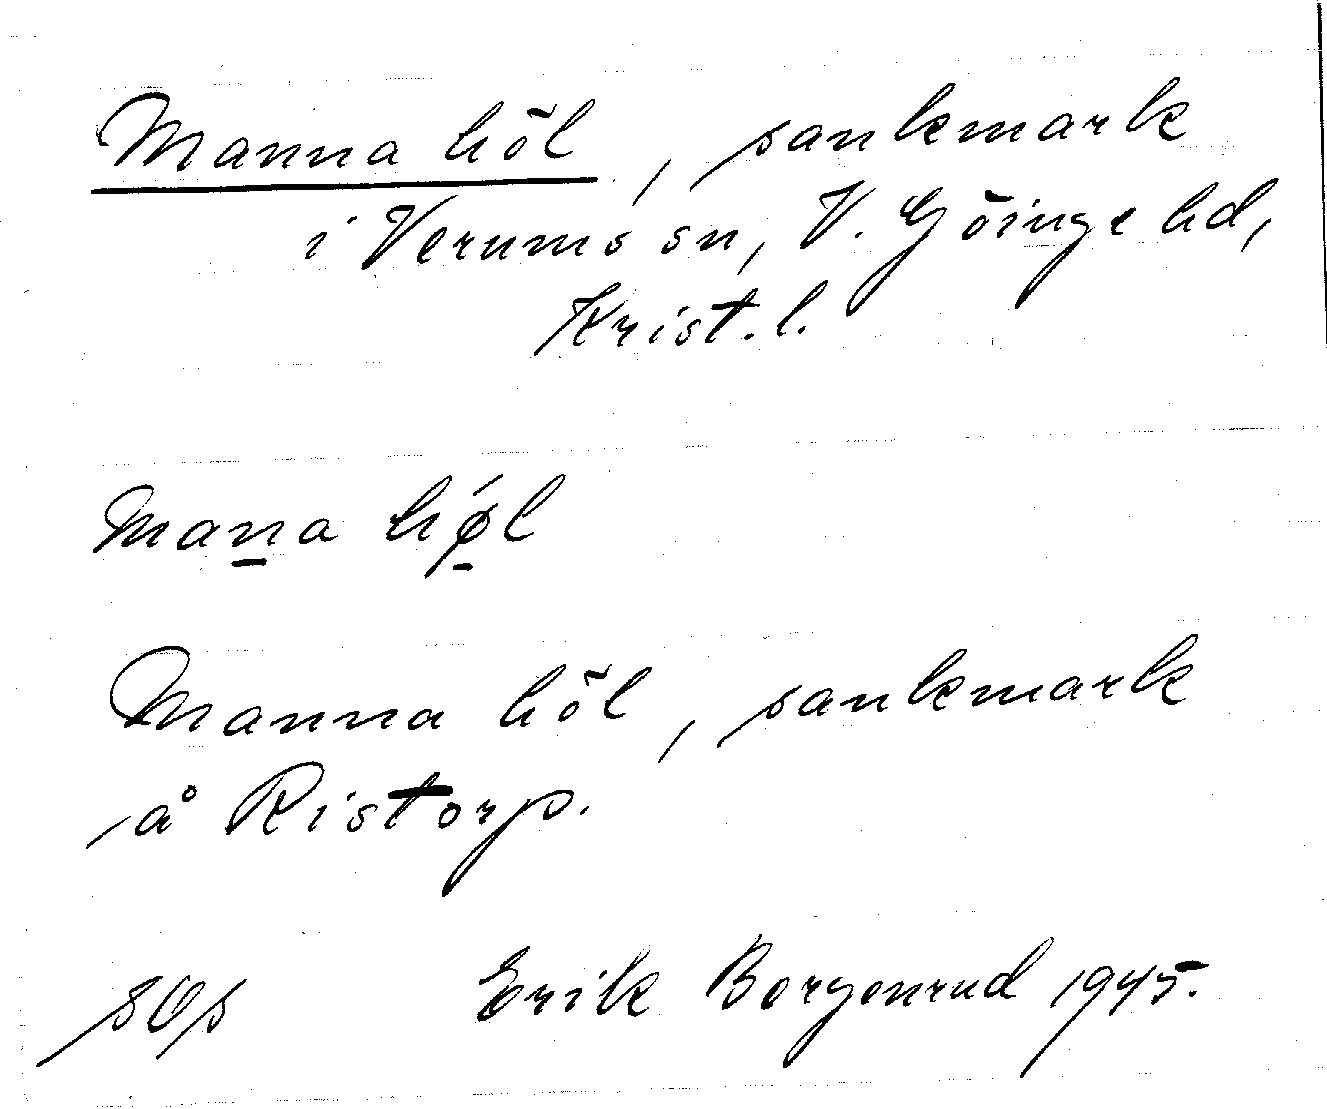 Manna höl, sankmark
i Verums sn, V. Göinge hd,
Krist. l.
Mana hǿl
Manna höl, sankmark
å Ristorp.
Erik Borgenrud 1945.